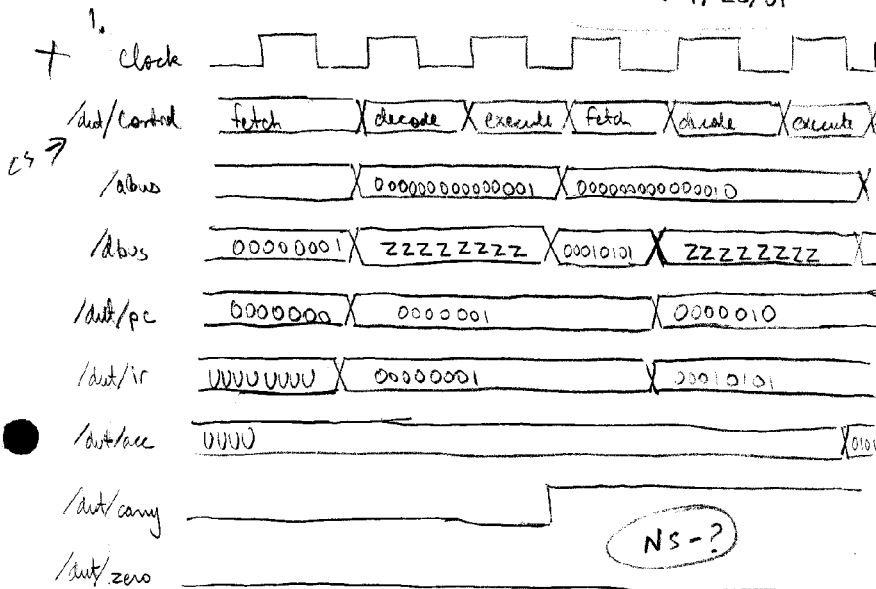 1.
+ Clock
/dut/control fetch decode execute fetch decode execute
cs ?
/abus 00000000000001 00000000000010
/dbus 00000001 ZZZZZZZZ 00010101 ZZZZZZZZ
/dut/pc 0000000 0000001 0000010
/dut/ir UUUUUUUU 00000001 00010101
/dut/acc UUUU 0101
/dut/carry
NS-?
/dut/zero